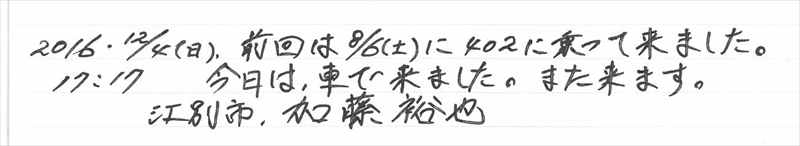 2016.12/4(日)、前回は8/6(土)に402に乗って来ました。
17:17 今日は、車で来ました。また来ます。
江別市、加藤裕也